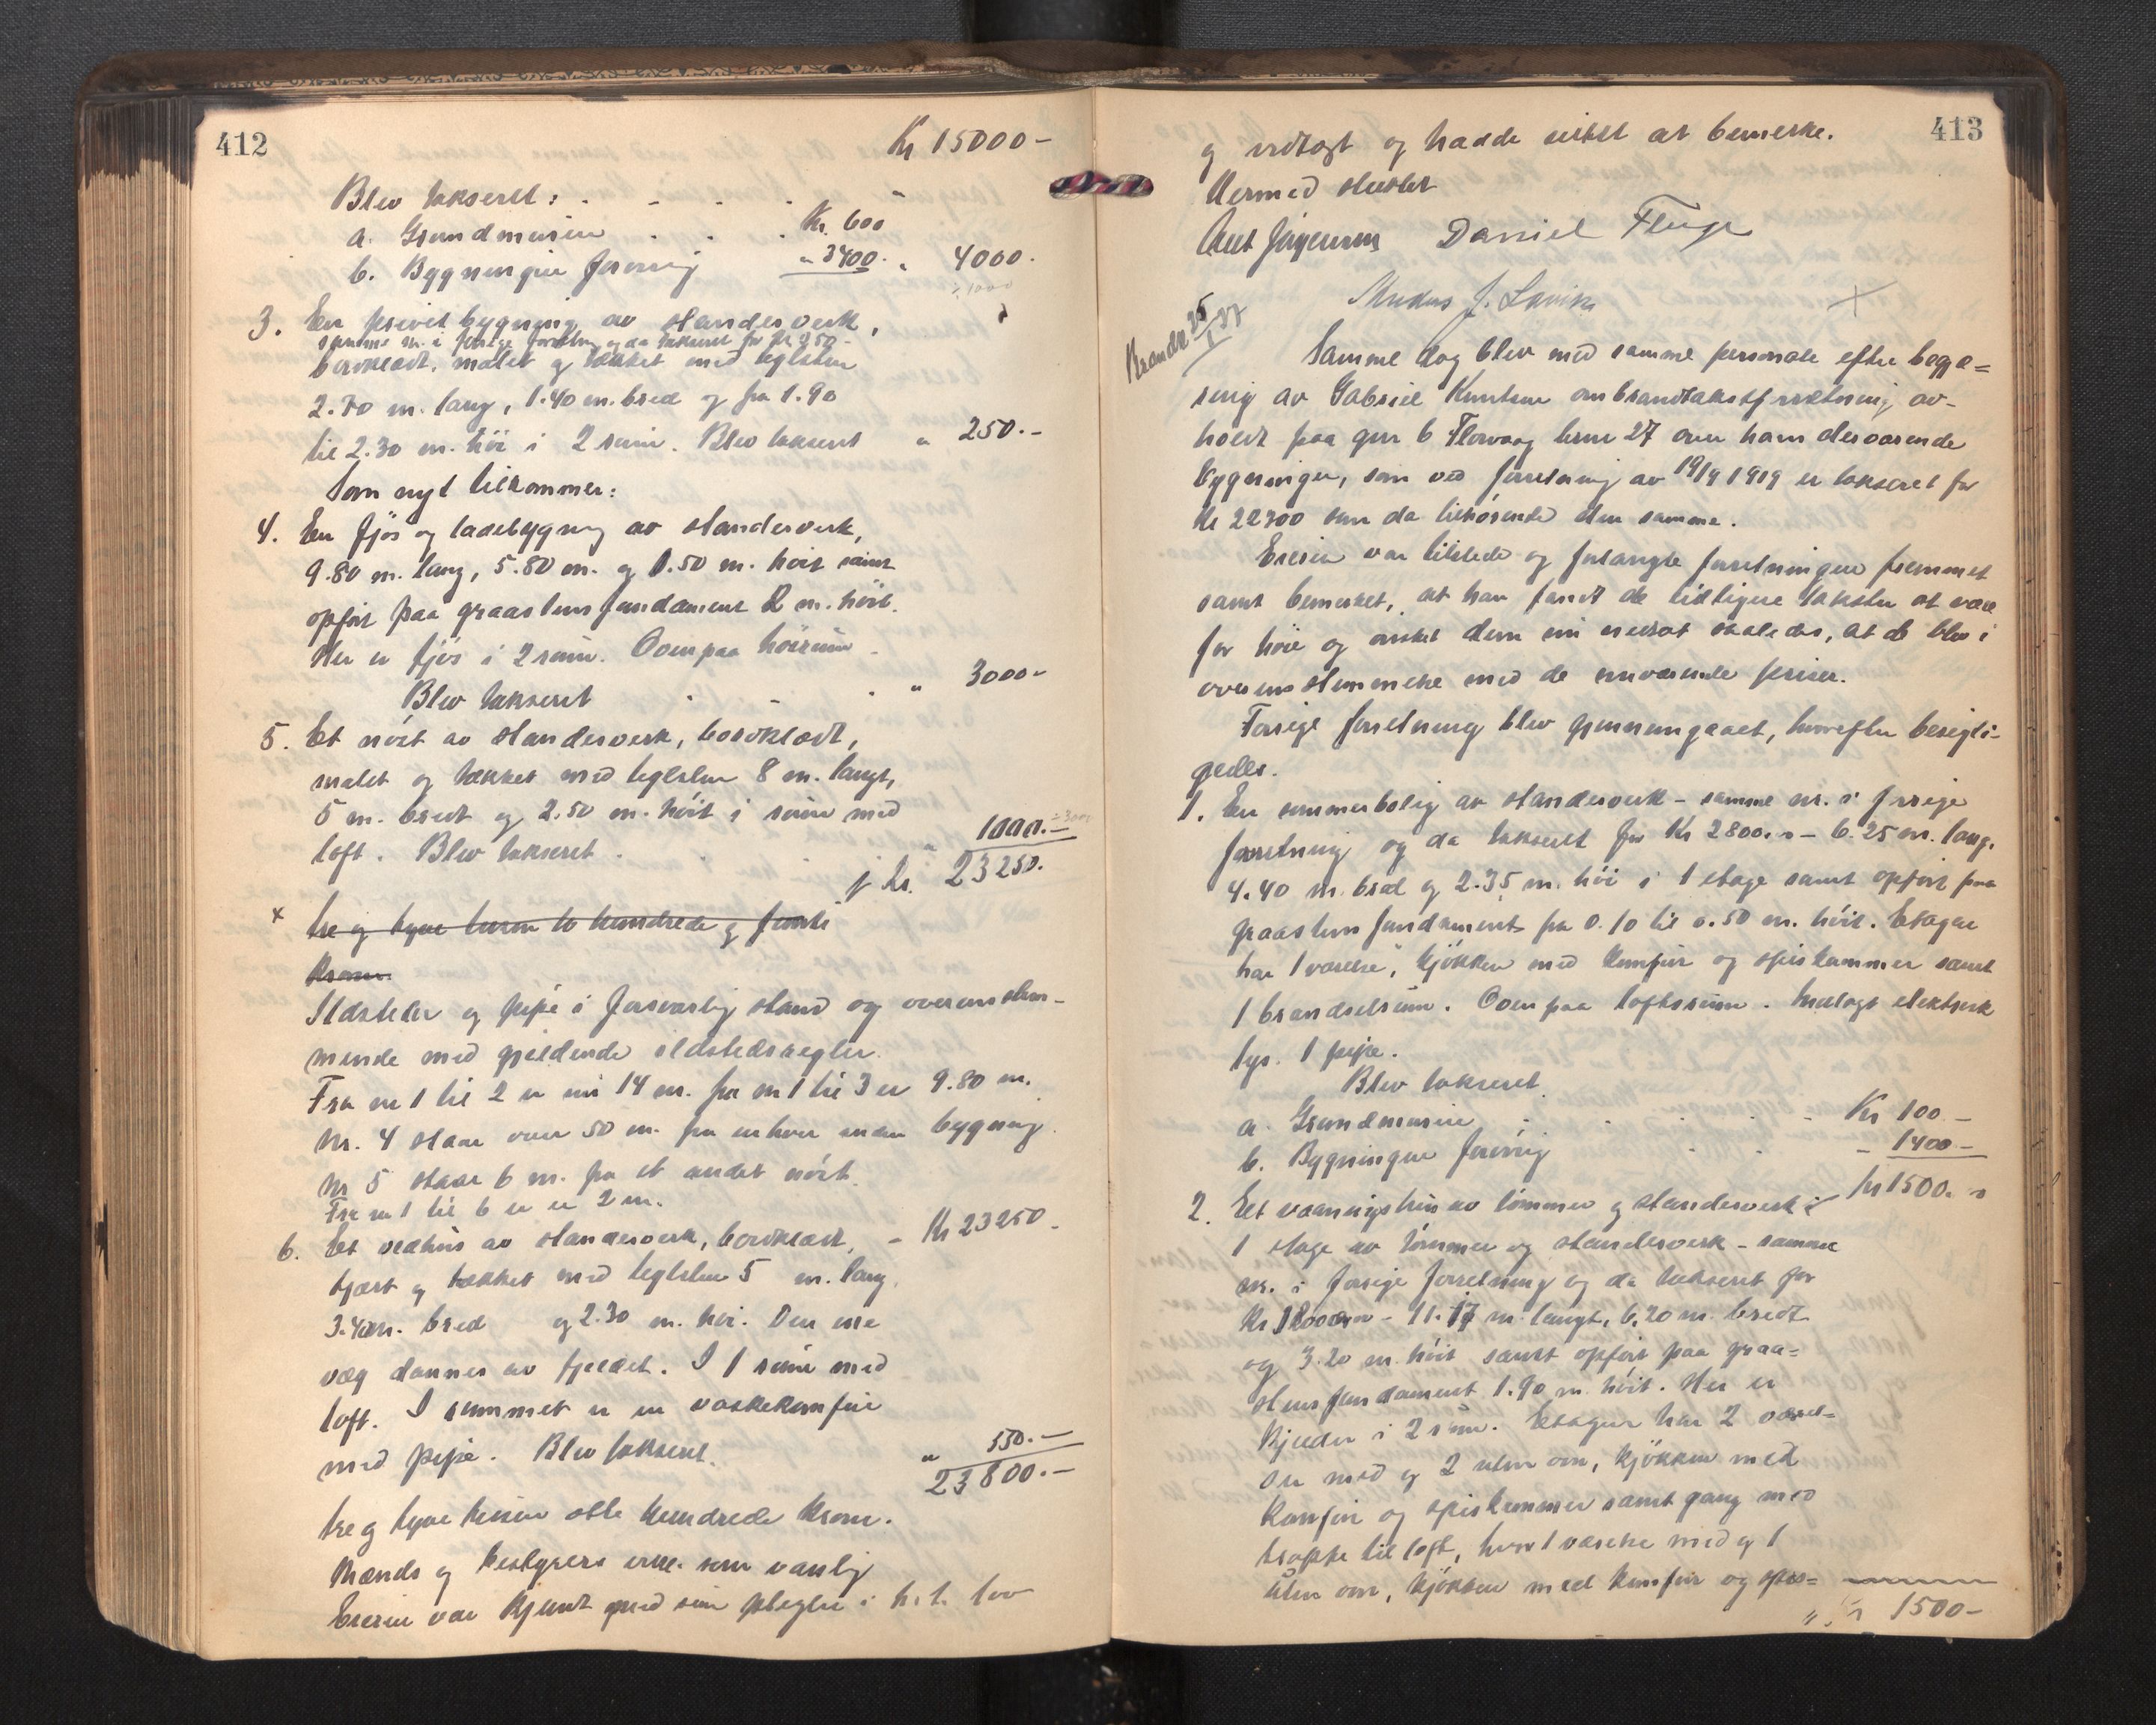 412
Kr 15000-
Blev takseret:
a. Grundmuren Kr. 600
b. Bygningen forøvrig " 3400. " 4000.
÷1000
3. En privetbygning av standerverk,
samme nr. i forrige forretning og da takseret for kr 250-
bordklædt, malet og tækket med teglsten
2.70 m. lang, 1.40 m. bred og fra 1.90
til 2.30 m. høi i 2 rum. Blev takseret " 250.-
Som nyt tilkommer:
4. En fjøs og ladebygning av standerverk,
9.80 m. lang, 5.80 m. og .50 m. høit samt
opført paa graastensfundament 2 m. høit.
Her er fjøs i 2 rum. Ovenpaa høirum
Blev takseret " 3000-
5. Et nøst av standerverk, bordklædt,
malet og tækket med teglsten 8 m. langt,
5 m. bredt og 2.50 m. høit i 1 rum med
loft. Blev takseret " 1000.-
Kr. 23250.
x tre og tyve tusen to hundrede og femti
kroner
Ildsteder og pipe i forsvarlig stand og overensstem-
mende med gjeldende ildstedsregler.
Fra nr 1 til 2 er nu 14 m. fra nr 1 til 3 er 9.80 m.
Nr. 4 staar over 50 m. fra enhver anden bygning.
Nr 5 staar 6 m. fra et andet nøst.
Fra nr 1 til 6 er 2 m.
6. Et vedhus av standerverk, bordklædt, - Kr 23250-
tjært og tækket med teglsten 5 m. lang,
3.40 m. bred og 2.30 m. høi. Den ene
væg dannes av fjeldet. I 1 rum med
loft. I rummet er en vaskekomfur
med pipe. Blev takseret. " 550.-
23800.-
tre og tyve tusen otte hundrede kroner.
Mænds og bestyrers erkl. som vanlig
Eieren var kjendt med sine pligter i h. t. lov
413
og vedtægt og hadde intet at bemerke.
Hermed sluttet
Daniel Fluge
J. Lavik
x
25/1 37
Samme dag blev med samme personale efter begjæ=
ring av Gabriel Knutsen ombrandtakstforretning av-
holdt paa gnr 6 Florvaag brnr 27 over hans derværende
bygninger, som ved forretning av 19/9 1919 er takseret for
Kr 22300 som da tilhørende den samme.
Eieren var tilstede og forlangte forretningen fremmet
samt bemerket, at han fandt de tidligere takster at være
for høie og ønsket dem nu nedsat saaledes, at de blev i
overensstemmelse med de nuværende priser.
Forrige forretning blev gjennemgaaet, hvorefter besigti-
gedes.
1. En sommerbolig av standerverk - samme nr. i forrige
forretning og da takseret for Kr 2800.- - 6.25 m. lang,
4.40 m. bred og 2.35 m. høi i 1 etage samt opført paa
graastensfundament fra 0.10 til 0.50 m. høit. Etagen
har 1 værelse, kjøkken med komfur og spiskammer samt
1 brændselsrum. Ovenpaa loftsrum. Indlagt elektrisk
lys. 1 pipe.
Blev takseret
a. Grundmuren Kr 100-
b. Bygningen forøvrig - 1400-
Kr 1500.-
2. Et vaaningshus av tømmer og standerverk i
1 etage av tømmer og standerverk - samme
nr. i forrige forretning og da takseret for
Kr - 11.17 m. langt, 6.20 m. bredt
og 3.20 m. høit samt opført paa graa=
stensfundament 1.90 m. høit. Her er
kjelder i 2 rum. Etagen har 2 værel=
ser med og 2 uten ovn, kjøkken med
komfur og spiskammer samt gang med
trappe til loft, hvor 1 værelse med og 1
uten ovn, kjøkken med komfur og spis=
1500-